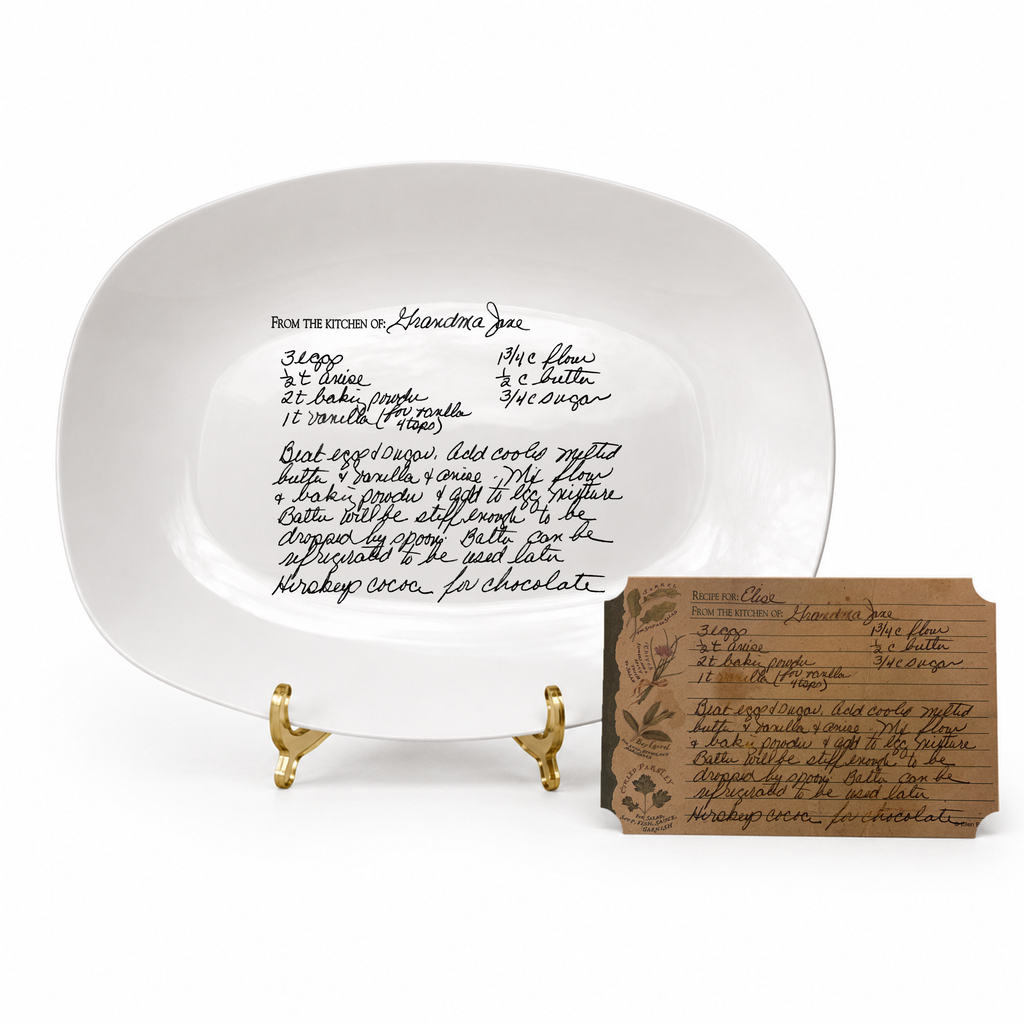 FROM THE KITCHEN OF: Grandma Jane
3 eggs
1 3/4 c flour
1/2 t anise
1/2 c butter
2t baking powder
3/4 c sugar
1t vanilla (for vanilla
4 tsps)
Beat eggs & sugar. Add cooled melted
butter & vanilla & anise. Mix flour
& baking powder & add to egg mixture
Batter will be stiff enough to be
dropped by spoon. Batter can be
refrigerated to be used later
Hersheys cocoa for chocolate
RECIPE FOR: Elise
FROM THE KITCHEN OF: Grandma Jane
3 eggs
1 3/4 c flour
1/2 t anise
1/2 c butter
2t baking powder
3/4 c sugar
1t vanilla (for vanilla
4 tsps)
Beat eggs & sugar. Add cooled melted
butter & vanilla & anise. Mix flour
& baking powder & add to egg mixture
Batter will be stiff enough to be
dropped by spoon. Batter can be
refrigerated to be used later
Hersheys cocoa for chocolate
SORREL
Chives
Bay Laurel
CURLED PARSLEY
GARNISH